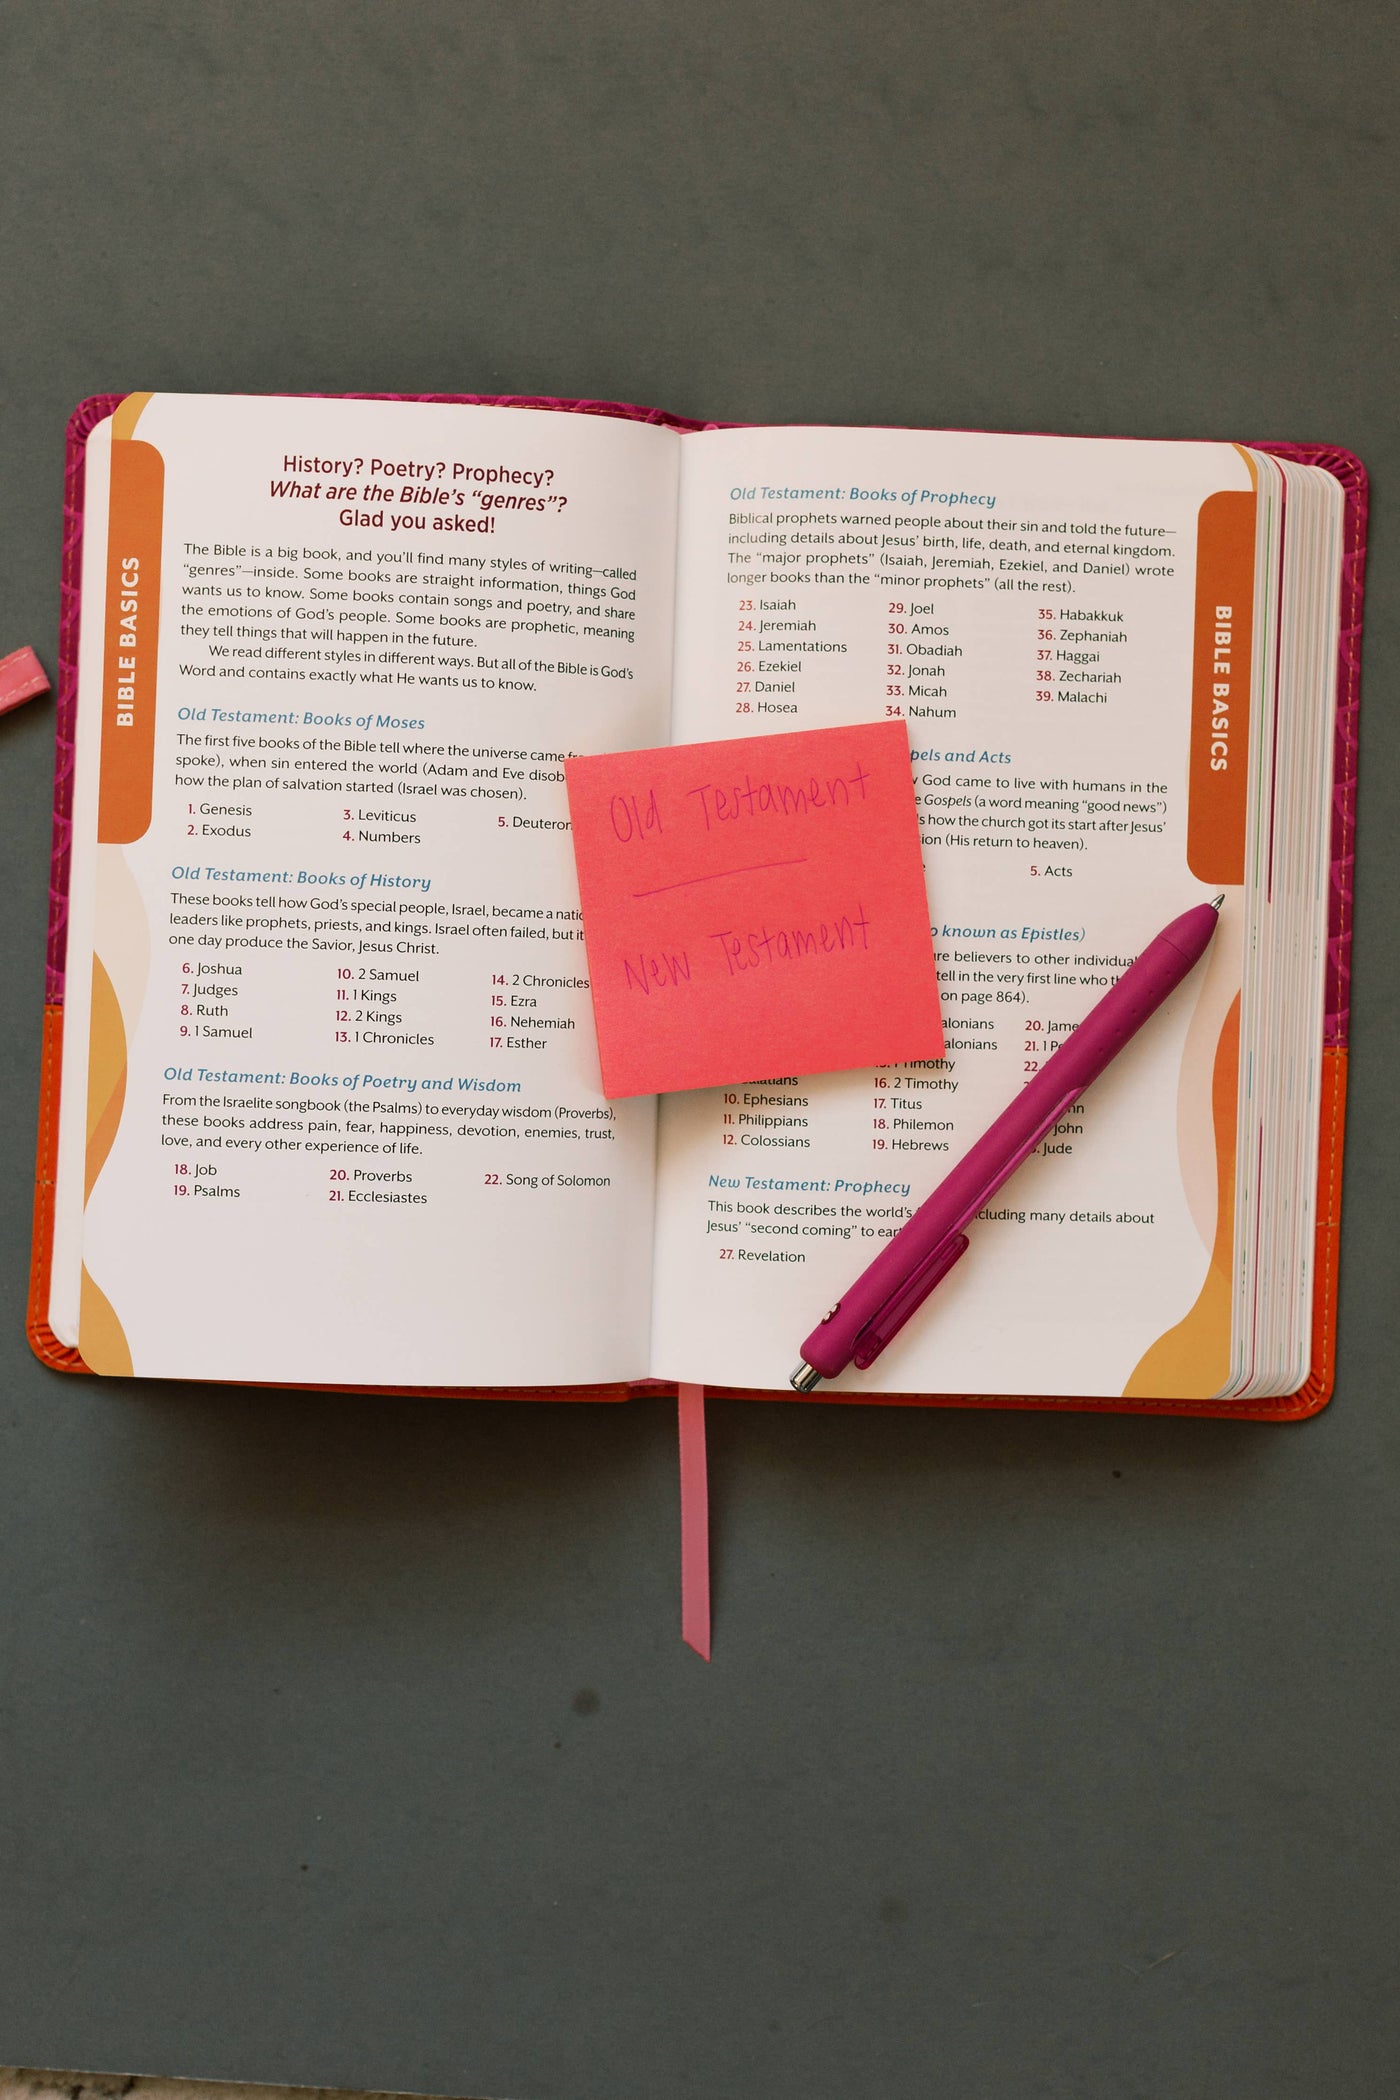 BIBLE BASICS
History? Poetry? Prophecy?
What are the Bible's "genres"?
Glad you asked!
The Bible is a big book, and you'll find many styles of writing—called
"genres"—inside. Some books are straight information, things God
wants us to know. Some books contain songs and poetry, and share
the emotions of God's people. Some books are prophetic, meaning
they tell things that will happen in the future.
We read different styles in different ways. But all of the Bible is God's
Word and contains exactly what He wants us to know.
Old Testament: Books of Moses
The first five books of the Bible tell where the universe came
spoke), when sin entered the world (Adam and Eve
how the plan of salvation started (Israel was chosen).
1. Genesis 3. Leviticus 5.
2. Exodus 4. Numbers
Old Testament: Books of History
These books tell how God's special people, Israel, became a
leaders like prophets, priests, and kings. Israel often failed, but it
one day produce the Savior, Jesus Christ.
6. Joshua 10. 2 Samuel 14. 2 Chronicles
7. Judges 11. 1 Kings 15. Ezra
8. Ruth 12. 2 Kings 16. Nehemiah
9. 1 Samuel 13. 1 Chronicles 17. Esther
Old Testament: Books of Poetry and Wisdom
From the Israelite songbook (the Psalms) to everyday wisdom (Proverbs),
these books address pain, fear, happiness, devotion, enemies, trust,
love, and every other experience of life.
18. Job 20. Proverbs 22. Song of Solomon
19. Psalms 21. Ecclesiastes
Old Testament
New Testament
Old Testament: Books of Prophecy
Biblical prophets warned people about their sin and told the future—
including details about Jesus' birth, life, death, and eternal kingdom.
The "major prophets" (Isaiah, Jeremiah, Ezekiel, and Daniel) wrote
longer books than the "minor prophets" (all the rest).
23. Isaiah 29. Joel 35. Habakkuk
24. Jeremiah 30. Amos 36. Zephaniah
25. Lamentations 31. Obadiah 37. Haggai
26. Ezekiel 32. Jonah 38. Zechariah
27. Daniel 33. Micah 39. Malachi
28. Hosea 34. Nahum
and Acts
God came to live with humans in the
Gospels (a word meaning "good news")
how the church got its start after Jesus'
(His return to heaven).
5. Acts
known as Epistles)
believers to other
tell in the very first line who
on page 864).
20.
21. 1
22.
10. Ephesians 16. 2 Timothy
11. Philippians 17. Titus
12. Colossians 18. Philemon John
19. Hebrews Jude
New Testament: Prophecy
This book describes the world's including many details about
Jesus' "second coming" to
27. Revelation
BIBLE BASICS